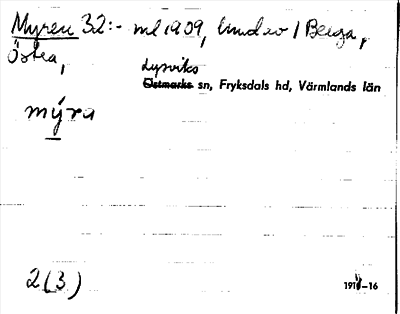 Myren 32:- ml 1909, under 1 Berga,
Östra,
Lysviks
Östmarks sn, Fryksdals hd, Värmlands län
mýra
2(3)
191 -16